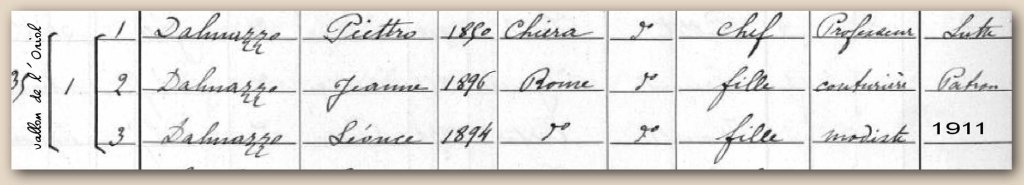 1 Dalmazzo Piettro 1850 Chiera do chef Professeur Lutte
35 1 2 Dalmazzo Jeanne 1896 Rome do fille couturière Patron
3 Dalmazzo Léonce 1894 do do fille modiste 1911
vallon de l'Oriol